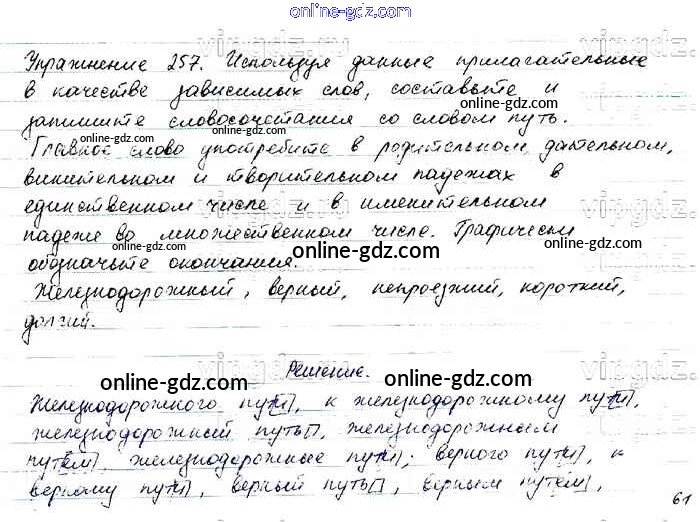 online-gdz.com
Упражнение 257. Используя данные прилагательные
в качестве зависимых слов, составьте и
online-gdz.com
запишите словосочетания со словом путь.
online-gdz.com online-gdz.com
Главное слово употребите в родительном, дательном,
винительном и творительном падежах в
единственном числе и в именительном
online-gdz.com online-gdz.com
падеже во множественном числе. Графически
online-gdz.com online-gdz.com
обозначьте окончания.
Железнодорожный, верный, непроезжий, короткий,
долгий.
Решение.
online-gdz.com online-gdz.com
Железнодорожного пути, к железнодорожному пути,
железнодорожный путь, железнодорожным
путём, железнодорожные пути; верного пути, к
верному пути, верный путь, верным путём,
61